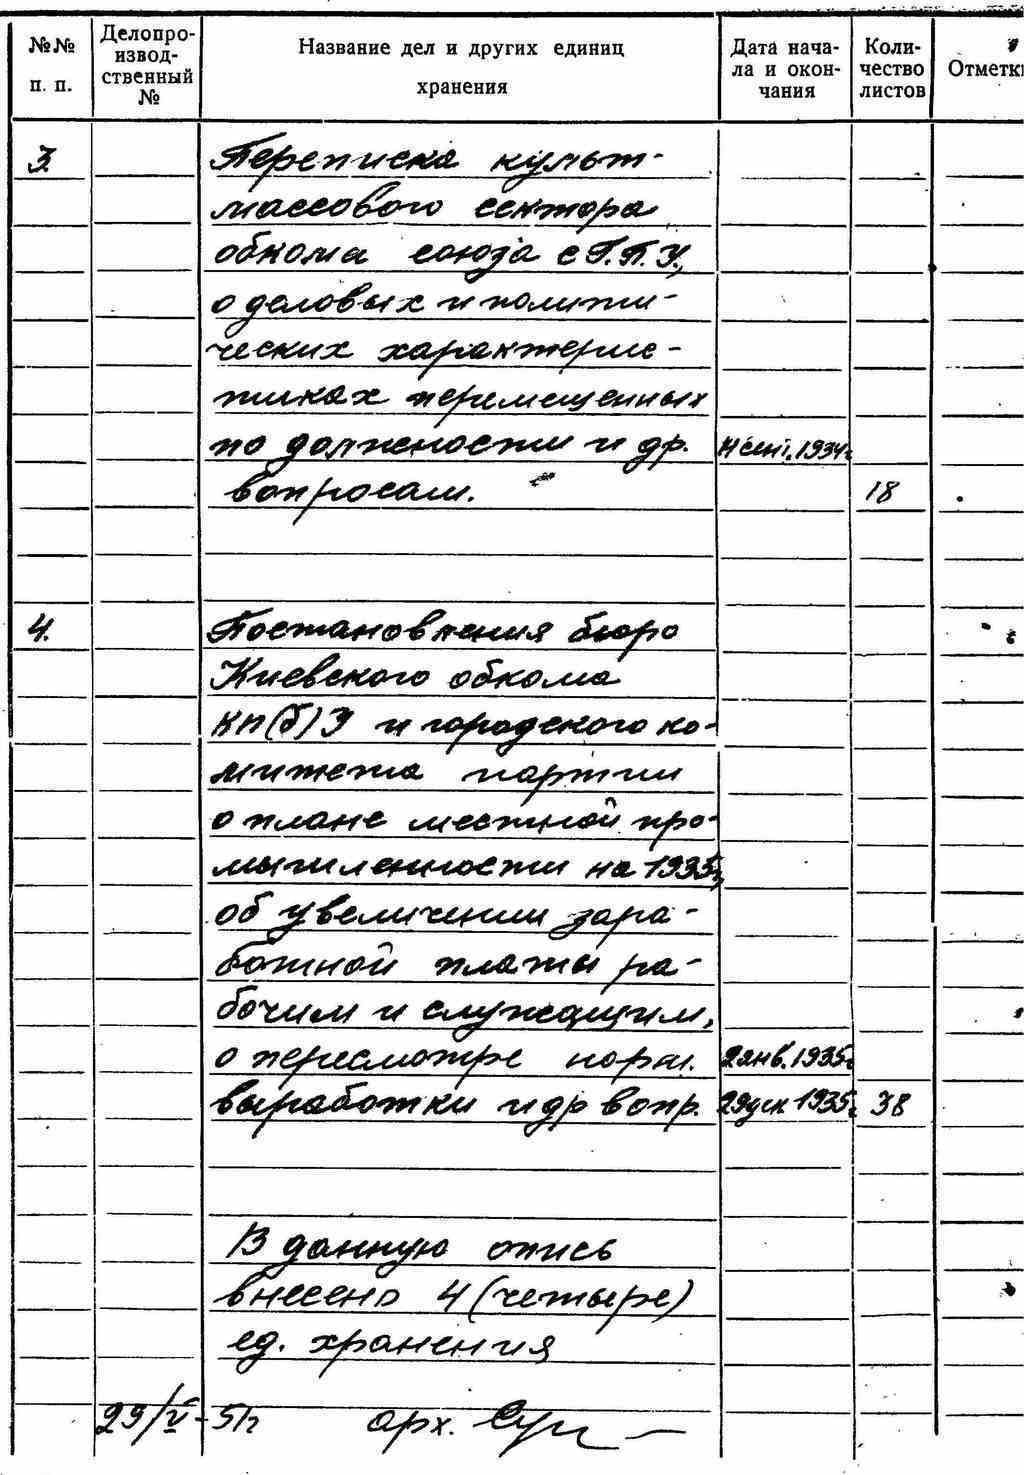 №№ п. п. Делопроизводственный № Название дел и других единиц хранения Дата начала и окончания Количество листов Отметки
3. Переписка культ-
массового сектора
обкома союза с Г.П.У.,
о деловых и полити-
ческих характерис-
тиках перемещенных
по должности и др. 1934г.
вопросам. 18
4. Постановления бюро
Киевского обкома
КП(б)У и городского ко-
митета партии
о плане местной про-
мышленности на 1935г,
об увеличении зара-
ботной платы ра-
бочим и служащим,
о пересмотре норм. 2янв.1935г
выработки и др вопр. 29дек 1935г. 38
В данную опись
внесено 4 (четыре)
ед. хранения
29/V-51г арх.